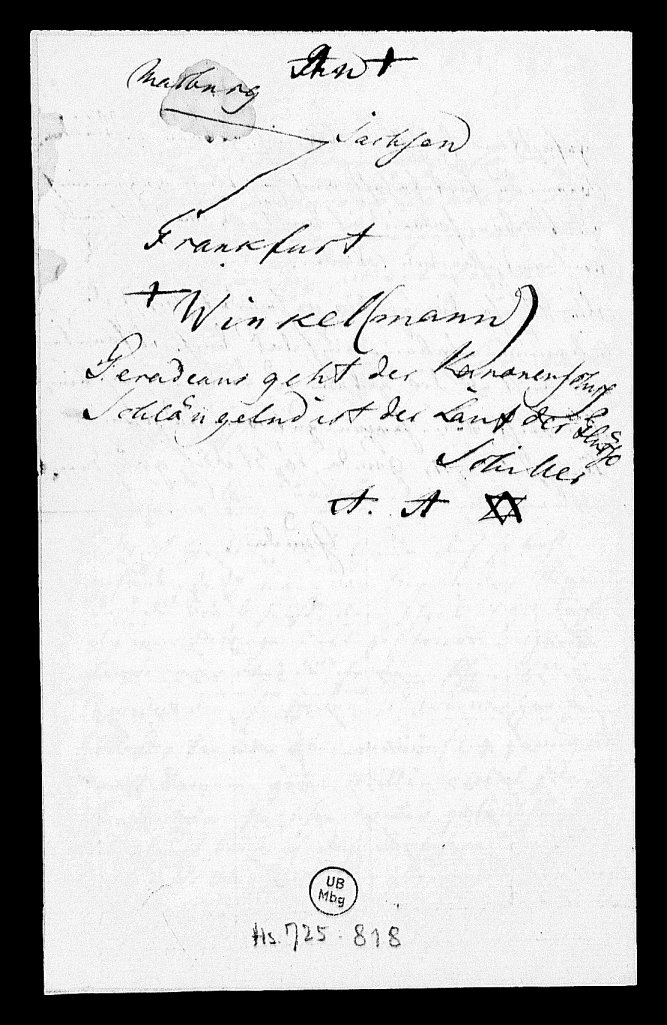 Marburg
Sachsen
Frankfurt
Winkel(mann)
Geradeaus geht der Kanonenschuß
Schlängelnd ist der Lauf der Flüße
Schiller
A. A
UB
Mbg
Hs. 725 : 818